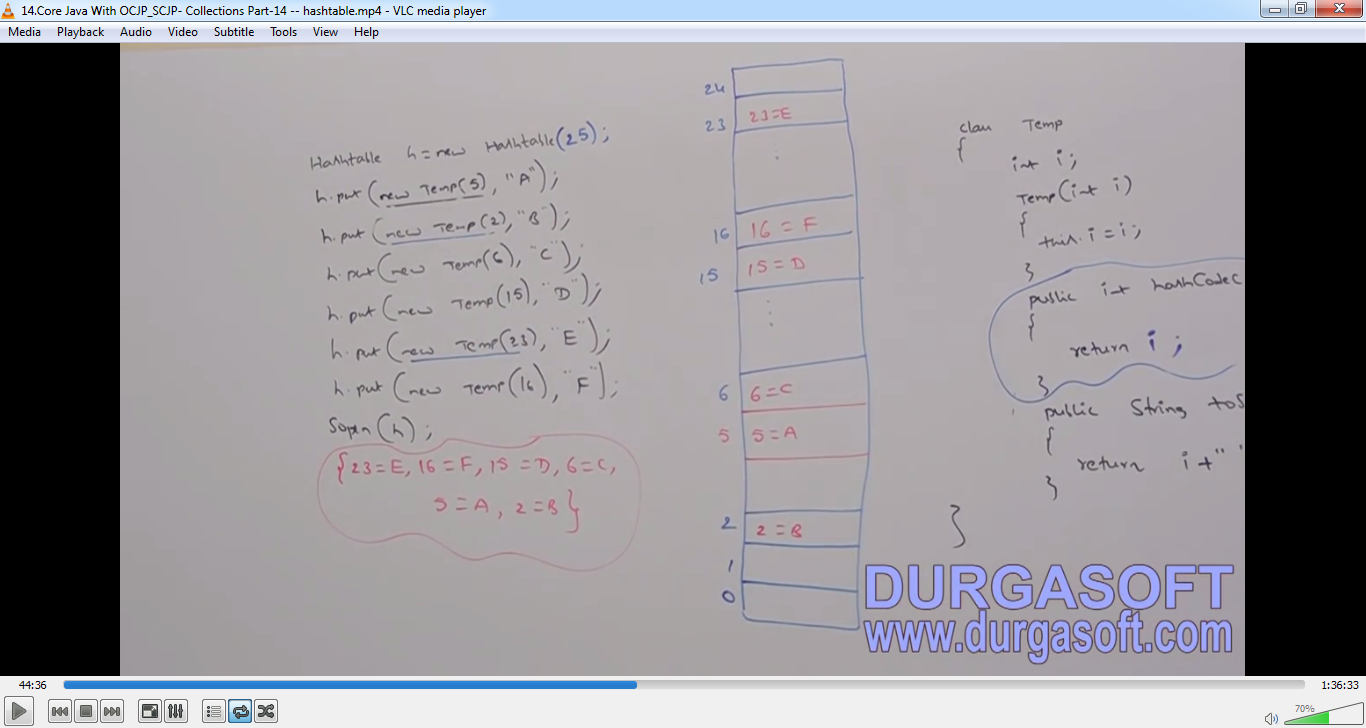 14.Core Java With OCJP_SCJP- Collections Part-14 -- hashtable.mp4 - VLC media player
Media Playback Audio Video Subtitle Tools View Help
Hashtable h = new Hashtable(25);
h.put(new Temp(5), "A");
h.put(new Temp(2), "B");
h.put(new Temp(6), "C");
h.put(new Temp(15), "D");
h.put(new Temp(23), "E");
h.put(new Temp(16), "F");
Sopln(h);
{23=E, 16=F, 15=D, 6=C,
5=A, 2=B}
24
23 23=E
16 16=F
15 15=D
6 6=C
5 5=A
2 2=B
1
0
class Temp
{
int i;
Temp(int i)
{
this.i=i;
}
public int hashCode(
{
return i;
}
public String toS
{
return i+""
}
}
DURGASOFT
www.durgasoft.com
44:36
1:36:33
70%